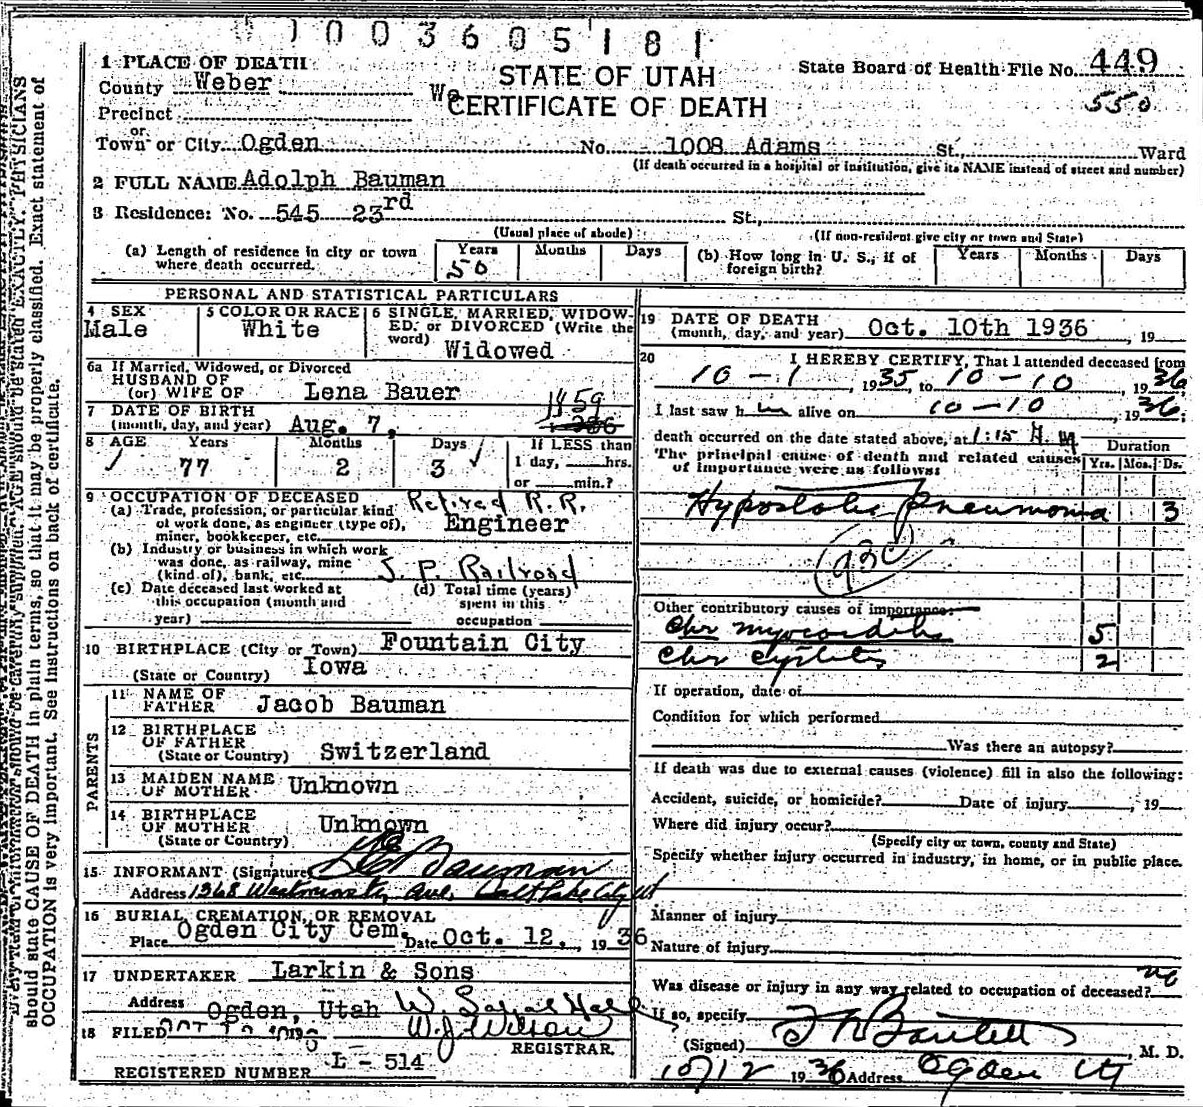 1003605181
1 PLACE OF DEATH
STATE OF UTAH
CERTIFICATE OF DEATH
State Board of Health File No. 449
550
County Weber
We
Precinct
or
Town or City Ogden No. 1008 Adams St., Ward
(If death occurred in a hospital or institution, give its NAME instead of street and number)
2 FULL NAME Adolph Bauman
3 Residence: No. 545 23rd St.,
(Usual place of abode) (If non-resident give city or town and State)
(a) Length of residence in city or town where death occurred. Years 50 Months Days
(b) How long in U. S., if of foreign birth? Years Months Days
PERSONAL AND STATISTICAL PARTICULARS
4 SEX Male
5 COLOR OR RACE White
6 SINGLE, MARRIED, WIDOWED, or DIVORCED (Write the word) Widowed
6a If Married, Widowed, or Divorced
HUSBAND OF
(or) WIFE OF Lena Bauer
7 DATE OF BIRTH
(month, day, and year) Aug. 7, 1859
8 AGE Years 77 Months 2 Days 3
If LESS than
1 day, hrs.
or min.?
9 OCCUPATION OF DECEASED Retired R.R.
(a) Trade, profession, or particular kind
of work done, as engineer (type of),
miner, bookkeeper, etc. Engineer
(b) Industry or business in which work
was done, as railway, mine
(kind of), bank, etc. S. P. Railroad
(c) Date deceased last worked at
this occupation (month and
year)
(d) Total time (years)
spent in this
occupation
10 BIRTHPLACE (City or Town) Fountain City
(State or Country) Iowa
PARENTS
11 NAME OF
FATHER Jacob Bauman
12 BIRTHPLACE
OF FATHER
(State or Country) Switzerland
13 MAIDEN NAME
OF MOTHER Unknown
14 BIRTHPLACE
OF MOTHER
(State or Country) Unknown
15 INFORMANT (Signature) Bauman
Address 1368 Westminster Ave, Salt Lake City ut
16 BURIAL, CREMATION, OR REMOVAL
Place Ogden City Cem. Date Oct. 12, 1936
17 UNDERTAKER Larkin & Sons
Address Ogden, Utah
18 FILED OCT 12 W.J. Wilson
REGISTRAR.
REGISTERED NUMBER L - 514
19 DATE OF DEATH
(month, day, and year) Oct. 10th 1936, 19
20 I HEREBY CERTIFY, That I attended deceased from
10 - 1, 1935 to 10 - 10 1936
I last saw him alive on 10 - 10, 1936;
death occurred on the date stated above, at 1:15 A.M
The principal cause of death and related causes
of importance were as follows:
Duration
Yrs. Mos. Ds.
Hypostatic Pneumonia 3
Other contributory causes of importance:
Chr myocarditis 5
Chr cystitis 2
If operation, date of
Condition for which performed
Was there an autopsy?
If death was due to external causes (violence) fill in also the following:
Accident, suicide, or homicide? Date of injury, 19
Where did injury occur?
(Specify city or town, county and State)
Specify whether injury occurred in industry, in home, or in public place.
Manner of injury
Nature of injury
Was disease or injury in any way related to occupation of deceased? no
If so, specify
(Signed) Bartlett, M. D.
10/12 1936 Address Ogden Ut
should state CAUSE OF DEATH in plain terms, so that it may be properly classified. Exact statement of
OCCUPATION is very important. See instructions on back of certificate.